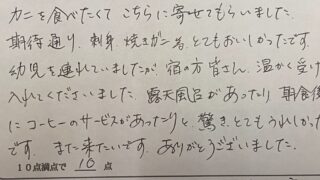 カニを食べたくて こちらに寄せてもらいました。
期待通り、刺身 焼きガニ等 とてもおいしかったです。
幼児を連れていましたが、宿の方皆さん、温かく受け
入れてくださいました。露天風呂があったり 朝食後
にコーヒーのサービスがあったりと 驚き、とてもうれしかった
です。また来たいです。ありがとうございました。
10点満点で 10 点